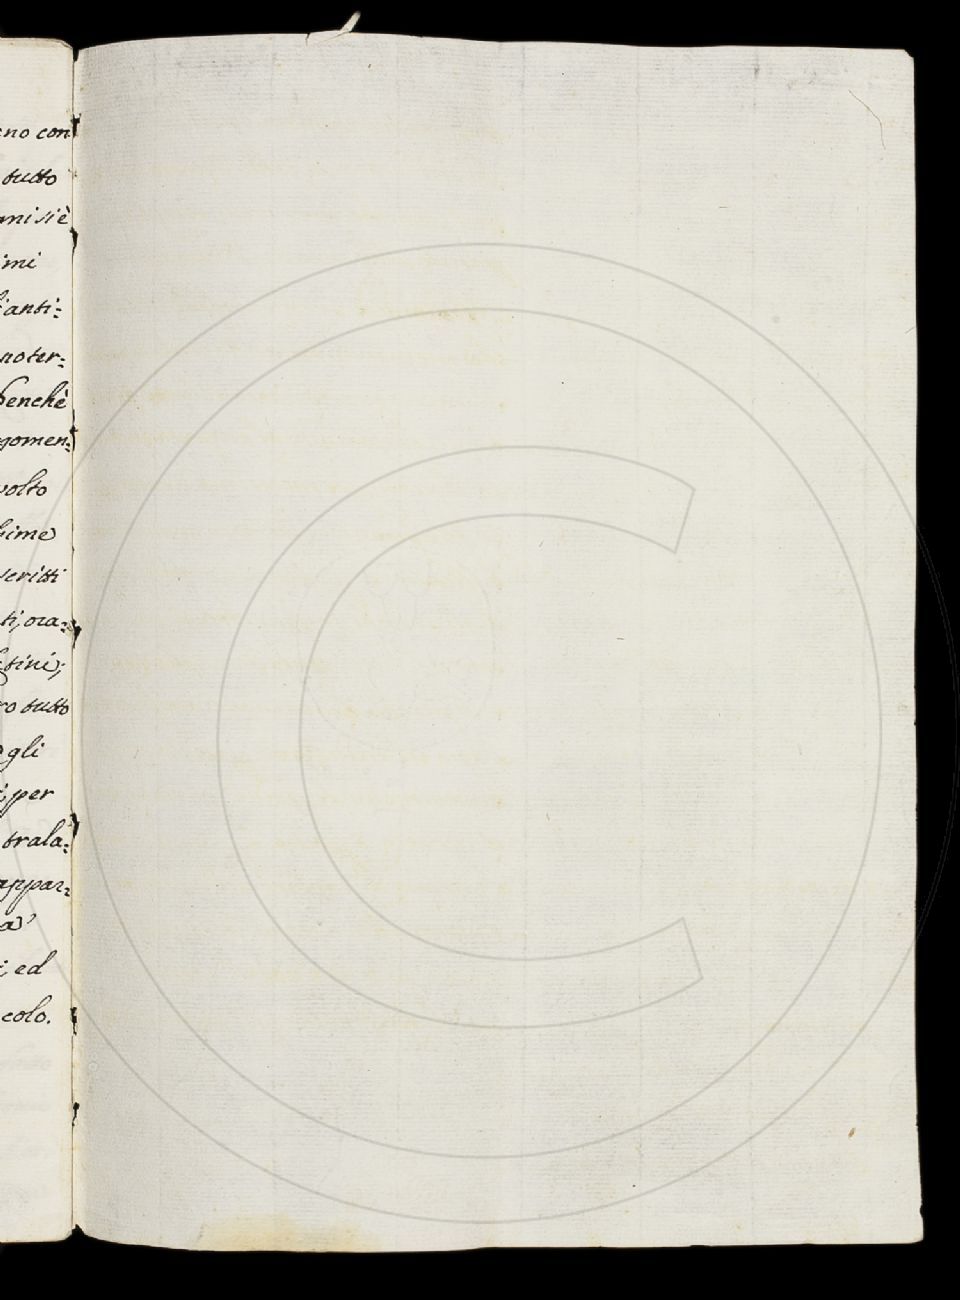 eno con
tutto
ani si è
imi
l'anti=
no ter=
benchè
gomen=
volto
sime
scritti
ti, ora=
tini;
ro tutto
gli
i, per
trala=
appar=
a'
i, ed
colo.